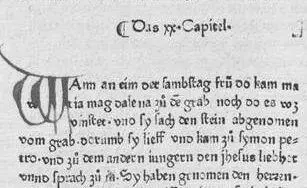 Das xx. Capitel.
WAnn an eim der sambstag frů do kam ma
ria magdalena zů dē grab noch do es wz
vinster. vnd sy sach den stein abgenomen
vom grab. dorumb sy lieff vnd kam zů symon pe-
tro. vnd zů dem andern iungern den jhesus liebhet
vnnd sprach zů in. Sy haben genomen den herren.